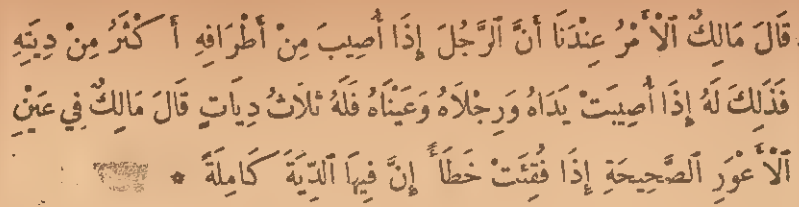 قَالَ مَالِكٌ ٱلْأَمْرُ عِنْدَنَا أَنَّ ٱلرَّجُلَ إِذَا أُصِيبَ مِنْ أَطْرَافِهِ أَكْثَرُ مِنْ دِيَتِهِ
فَذَلِكَ لَهُ إِذَا أُصِيبَتْ يَدَاهُ وَرِجْلَاهُ وَعَيْنَاهُ فَلَهُ ثَلَاثُ دِيَاتٍ قَالَ مَالِكٌ فِي عَيْنِ
ٱلْأَعْوَرِ ٱلصَّحِيحَةِ إِذَا فُقِئَتْ خَطَأً إِنَّ فِيهَا ٱلدِّيَةَ كَامِلَةً *